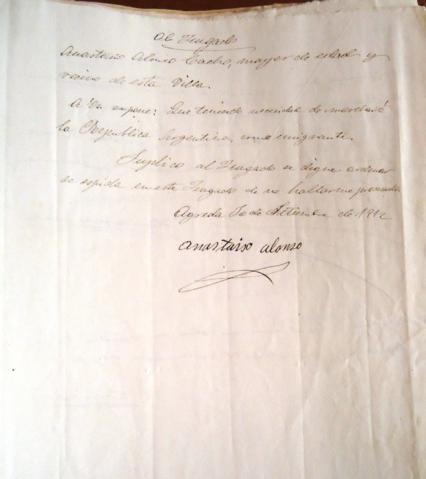 Al Juzgado
Anastasio Alonso Cacho, mayor de edad y
vecino de esta Villa.
A Vd. expone: Que teniendo necesidad de marchar á
la República Argentina, como emigrante.
Suplico al Juzgado se digne ordenar
se expida en este Juzgado de no hallarme procesado
Agreda 30 de Setiembre de 1912
Anastasio Alonso